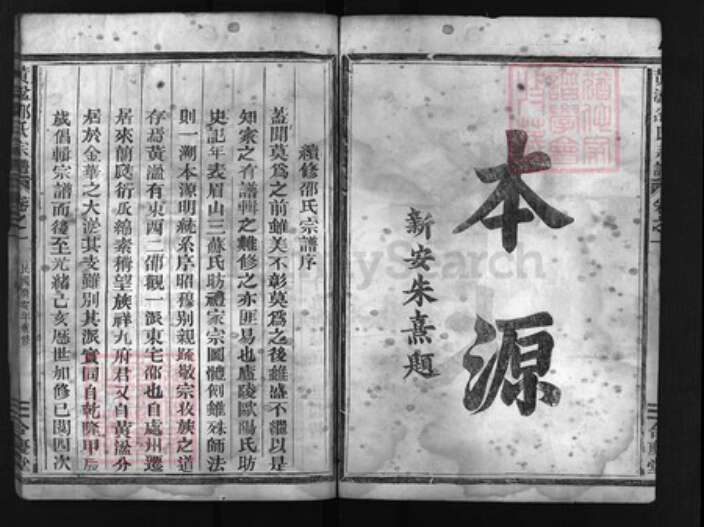 本源
新安朱熹題
續修邵氏宗譜序
蓋聞莫為之前雖美不彰莫為之後雖盛不繼以是
知家之有譜輯之難修之亦匪易也廬陵歐陽氏昉
史記年表眉山三蘇氏昉禮家宗圖體例雖殊師法
則一溯本源明統系序昭穆別親疏敬宗收族之道
存焉黃湓有東西二邵觀一派東宅邵也自處州遷
居來蘭民衍成綿素稱望族祥九府君又自黃湓分
居於金華之大淤其支雖別其派實同自乾隆甲辰
歲倡輯宗譜而後至光緒己亥歷世加修已閱四次
邵氏宗譜
卷之一